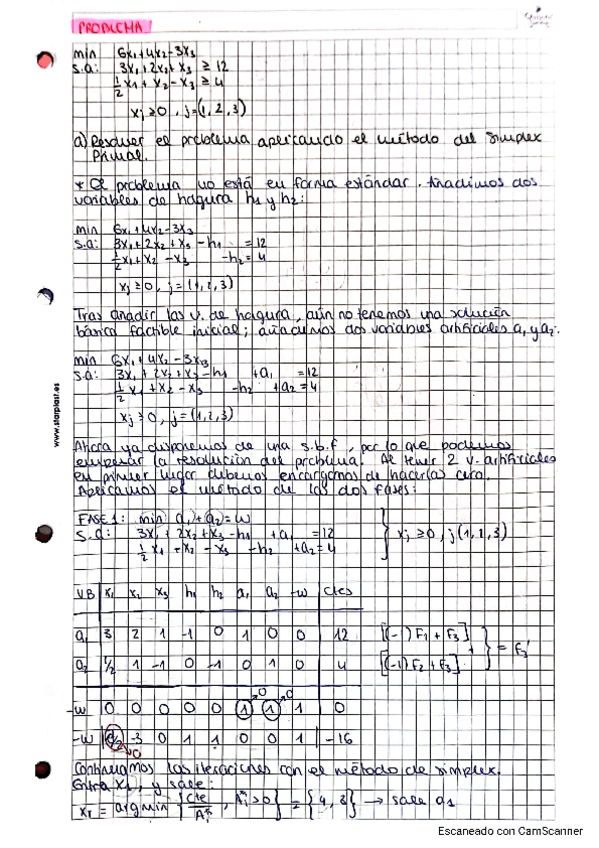 PROBLEMA
min 6x₁+4x₂-3x₃
s.a: 3x₁+2x₂+x₃ ≥ 12
½x₁ + x₂ - x₃ ≥ 4
xⱼ ≥0 , j=(1, 2, 3)
a) Resolver el problema aplicando el método del simplex
Primal.
* El problema no está en forma estándar. Añadimos dos
variables de holgura h₁ y h₂:
min 6x₁+4x₂-3x₃
s.a: 3x₁+2x₂+x₃ -h₁ =12
½x₁+x₂ -x₃ -h₂=4
xⱼ ≥0, j=(1,2,3)
Tras añadir las v. de holgura, aún no tenemos una solución
básica factible inicial; añadimos dos variables artificiales a₁ y a₂.
min 6x₁+4x₂-3x₃
s.a: 3x₁+2x₂+x₃-h₁ +a₁ =12
½x₁+x₂-x₃ -h₂ +a₂=4
xⱼ ≥0, j=(1,2,3)
Ahora ya disponemos de una s.b.f, por lo que podemos
empezar la resolución del problema. Al tener 2 v. artificiales
en primer lugar debemos encargarnos de hacerlas cero.
Aplicamos el método de las dos fases:
FASE 1: min a₁+a₂=w
s.a: 3x₁+2x₂+x₃-h₁ +a₁ =12
½x₁ +x₂ -x₃ -h₂ +a₂=4
xⱼ ≥0, j(1,2,3)
V.B x₁ x₂ x₃ h₁ h₂ a₁ a₂ -w Ctes
a₁ 3 2 1 -1 0 1 0 0 12 [(-1) F₁ + F₃]
a₂ 1/2 1 -1 0 -1 0 1 0 4 [(-1) F₂ + F₃] + = F₃'
-w 0 0 0 0 0 1 →0 1 →0 1 0
-w -3 0 1 1 0 0 1 -16
Continuamos las iteraciones con el método de simplex.
Entra x₁, y sale:
= argmin { = {4, 8} → sale a₁
www.starplast.es
Escaneado con CamScanner